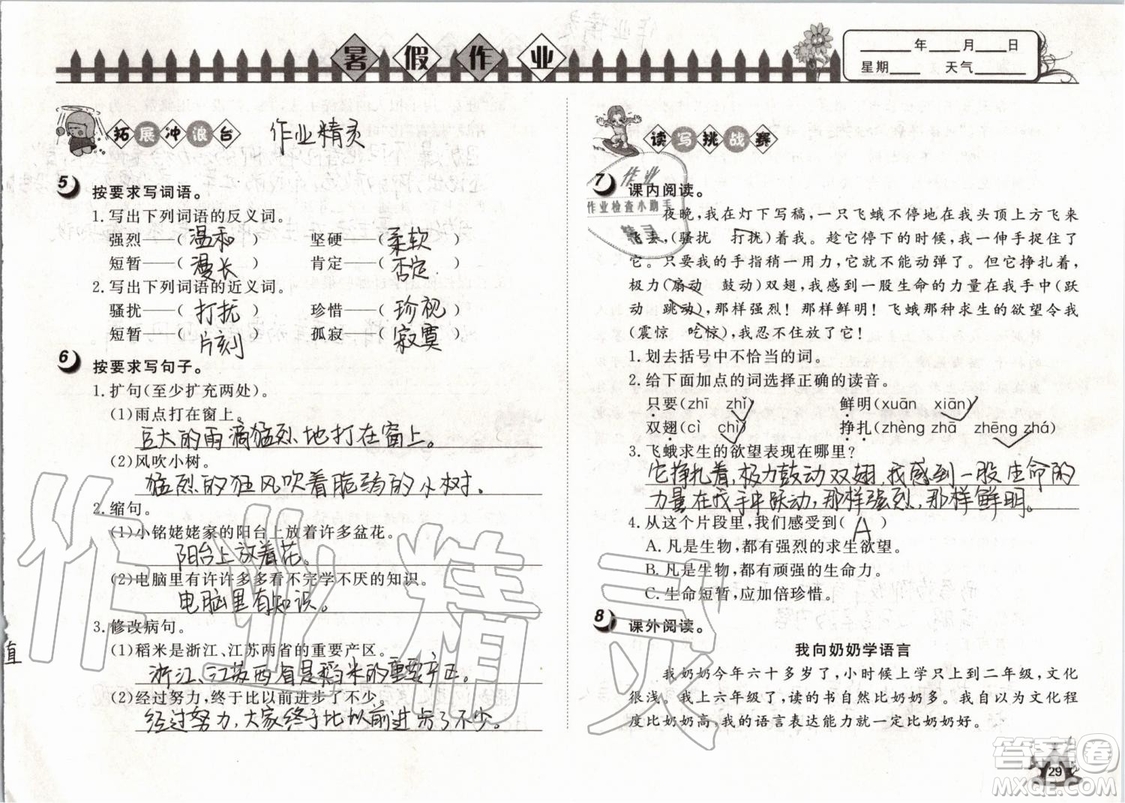 作业精灵
暑假作业
年 月 日
星期 天气
拓展冲浪台
作业精灵
5 按要求写词语。
1. 写出下列词语的反义词。
强烈——(温和) 坚硬——(柔软)
短暂——(漫长) 肯定——(否定)
2. 写出下列词语的近义词。
骚扰——(打扰) 珍惜——(珍视)
短暂——(片刻) 孤寂——(寂寞)
6 按要求写句子。
1. 扩句(至少扩充两处)。
(1)雨点打在窗上。
巨大的雨滴猛烈地打在窗上。
(2)风吹小树。
猛烈的狂风吹着脆弱的小树。
2. 缩句。
(1)小铭姥姥家的阳台上放着许多盆花。
阳台上放着花。
(2)电脑里有许许多多看不完学不厌的知识。
电脑里有知识。
3. 修改病句。
(1)稻米是浙江、江苏两省的重要产区。
浙江、江苏两省是稻米的重要产区。
(2)经过努力,终于比以前进步了不少。
经过努力,大家终于比以前进步了不少。
读写挑战赛
作业
作业检查小助手
精灵
7 课内阅读。
夜晚,我在灯下写稿,一只飞蛾不停地在我头上方飞来
飞去,(骚扰 打扰)着我。趁它停下的时候,我一伸手捉住了
它。只要我的手指稍一用力,它就不能动弹了。但它挣扎着,
极力(扇动 鼓动)双翅,我感到一股生命的力量在我手中(跃
动 跳动),那样强烈!那样鲜明!飞蛾那种求生的欲望令我
(震惊 吃惊),我忍不住放了它!
1. 划去括号中不恰当的词。
2. 给下面加点的词选择正确的读音。
只要(zhī zhǐ) 鲜明(xuān xiān)
双翅(cì chì) 挣扎(zhèng zhā zhēng zhá)
3. 飞蛾求生的欲望表现在哪里?
它挣扎着,极力鼓动双翅,我感到一股生命的
力量在我手中跃动,那样强烈,那样鲜明。
4. 从这个片段里,我们感受到(A)
A. 凡是生物,都有强烈的求生欲望。
B. 凡是生物,都有顽强的生命力。
C. 生命短暂,应加倍珍惜。
8 课外阅读。
我向奶奶学语言
我奶奶今年六十多岁了,小时候上学只上到二年级,文化
很浅。我上六年级了,读的书自然比奶奶多。我自以为文化程
度比奶奶高,我的语言表达能力就一定比奶奶好。
作业精灵
值
29
答案圈
MXQE.COM